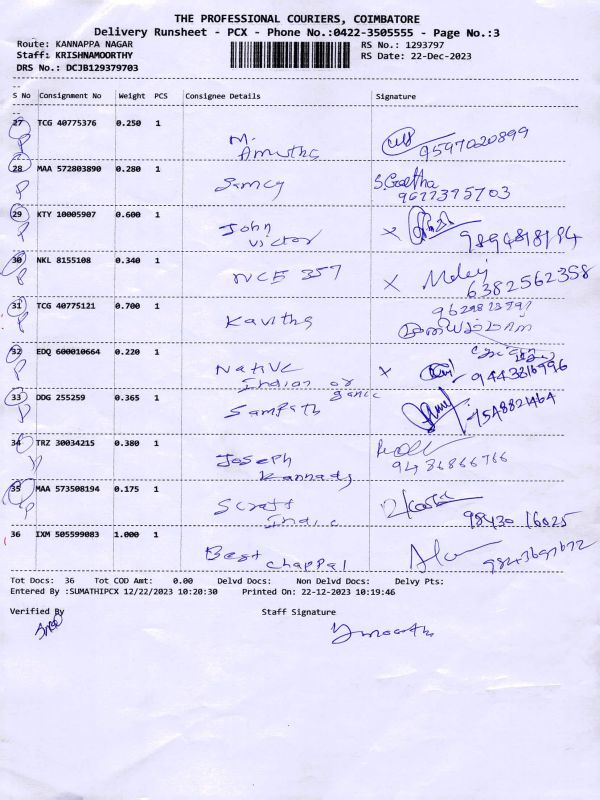 THE PROFESSIONAL COURIERS, COIMBATORE
Delivery Runsheet - PCX - Phone No.:0422-3505555 - Page No.:3
Route: KANNAPPA NAGAR RS No.: 1293797
Staff: KRISHNAMOORTHY RS Date: 22-Dec-2023
DRS No.: DCJB129379703
S No Consignment No Weight PCS Consignee Details Signature
27 TCG 40775376 0.250 1
M.
Amutha 9597020899
28 MAA 572803890 0.280 1
S.Geetha
9677375703
29 KTY 10005907 0.600 1
John
victor 9894818184
30 NKL 8155108 0.340 1
NCE 357
6382562358
31 TCG 40775121 0.700 1
Kavitha
32 EDQ 600010664 0.220 1
Native
Indian organic 9443316996
33 DDG 255259 0.365 1
Sampath
34 TRZ 30034215 0.380 1
Joseph
Kannady
35 MAA 573508194 0.175 1
98430 16025
36 IXM 505599083 1.000 1
Best
chappal
Tot Docs: 36 Tot COD Amt: 0.00 Delvd Docs: Non Delvd Docs: Delvy Pts:
Entered By :SUMATHIPCX 12/22/2023 10:20:30 Printed On: 22-12-2023 10:19:46
Verified By Staff Signature